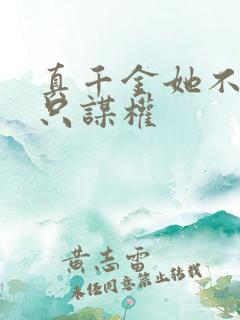 真千金她不
只謀權
黄志雷
未经同意禁止转载